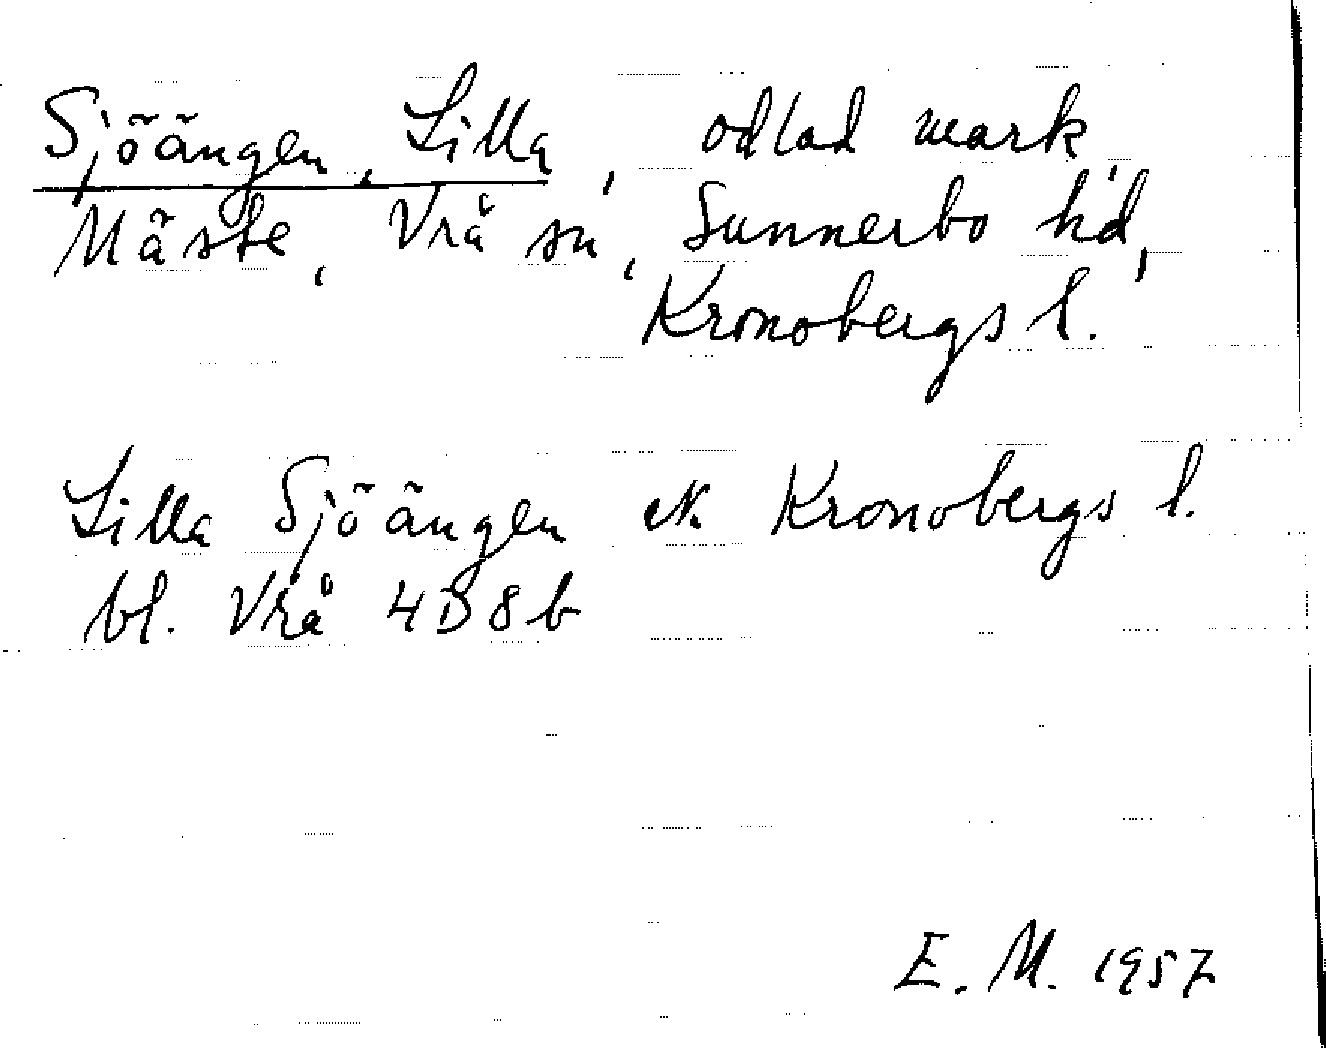 Sjöängen, Lilla, odlad mark,
Mäste, Vrå sn, Sunnerbo hd,
Kronobergs l.
Lilla Sjöängen ek. Kronobergs l.
bl. Vrå 4D8b
E. M. 1957